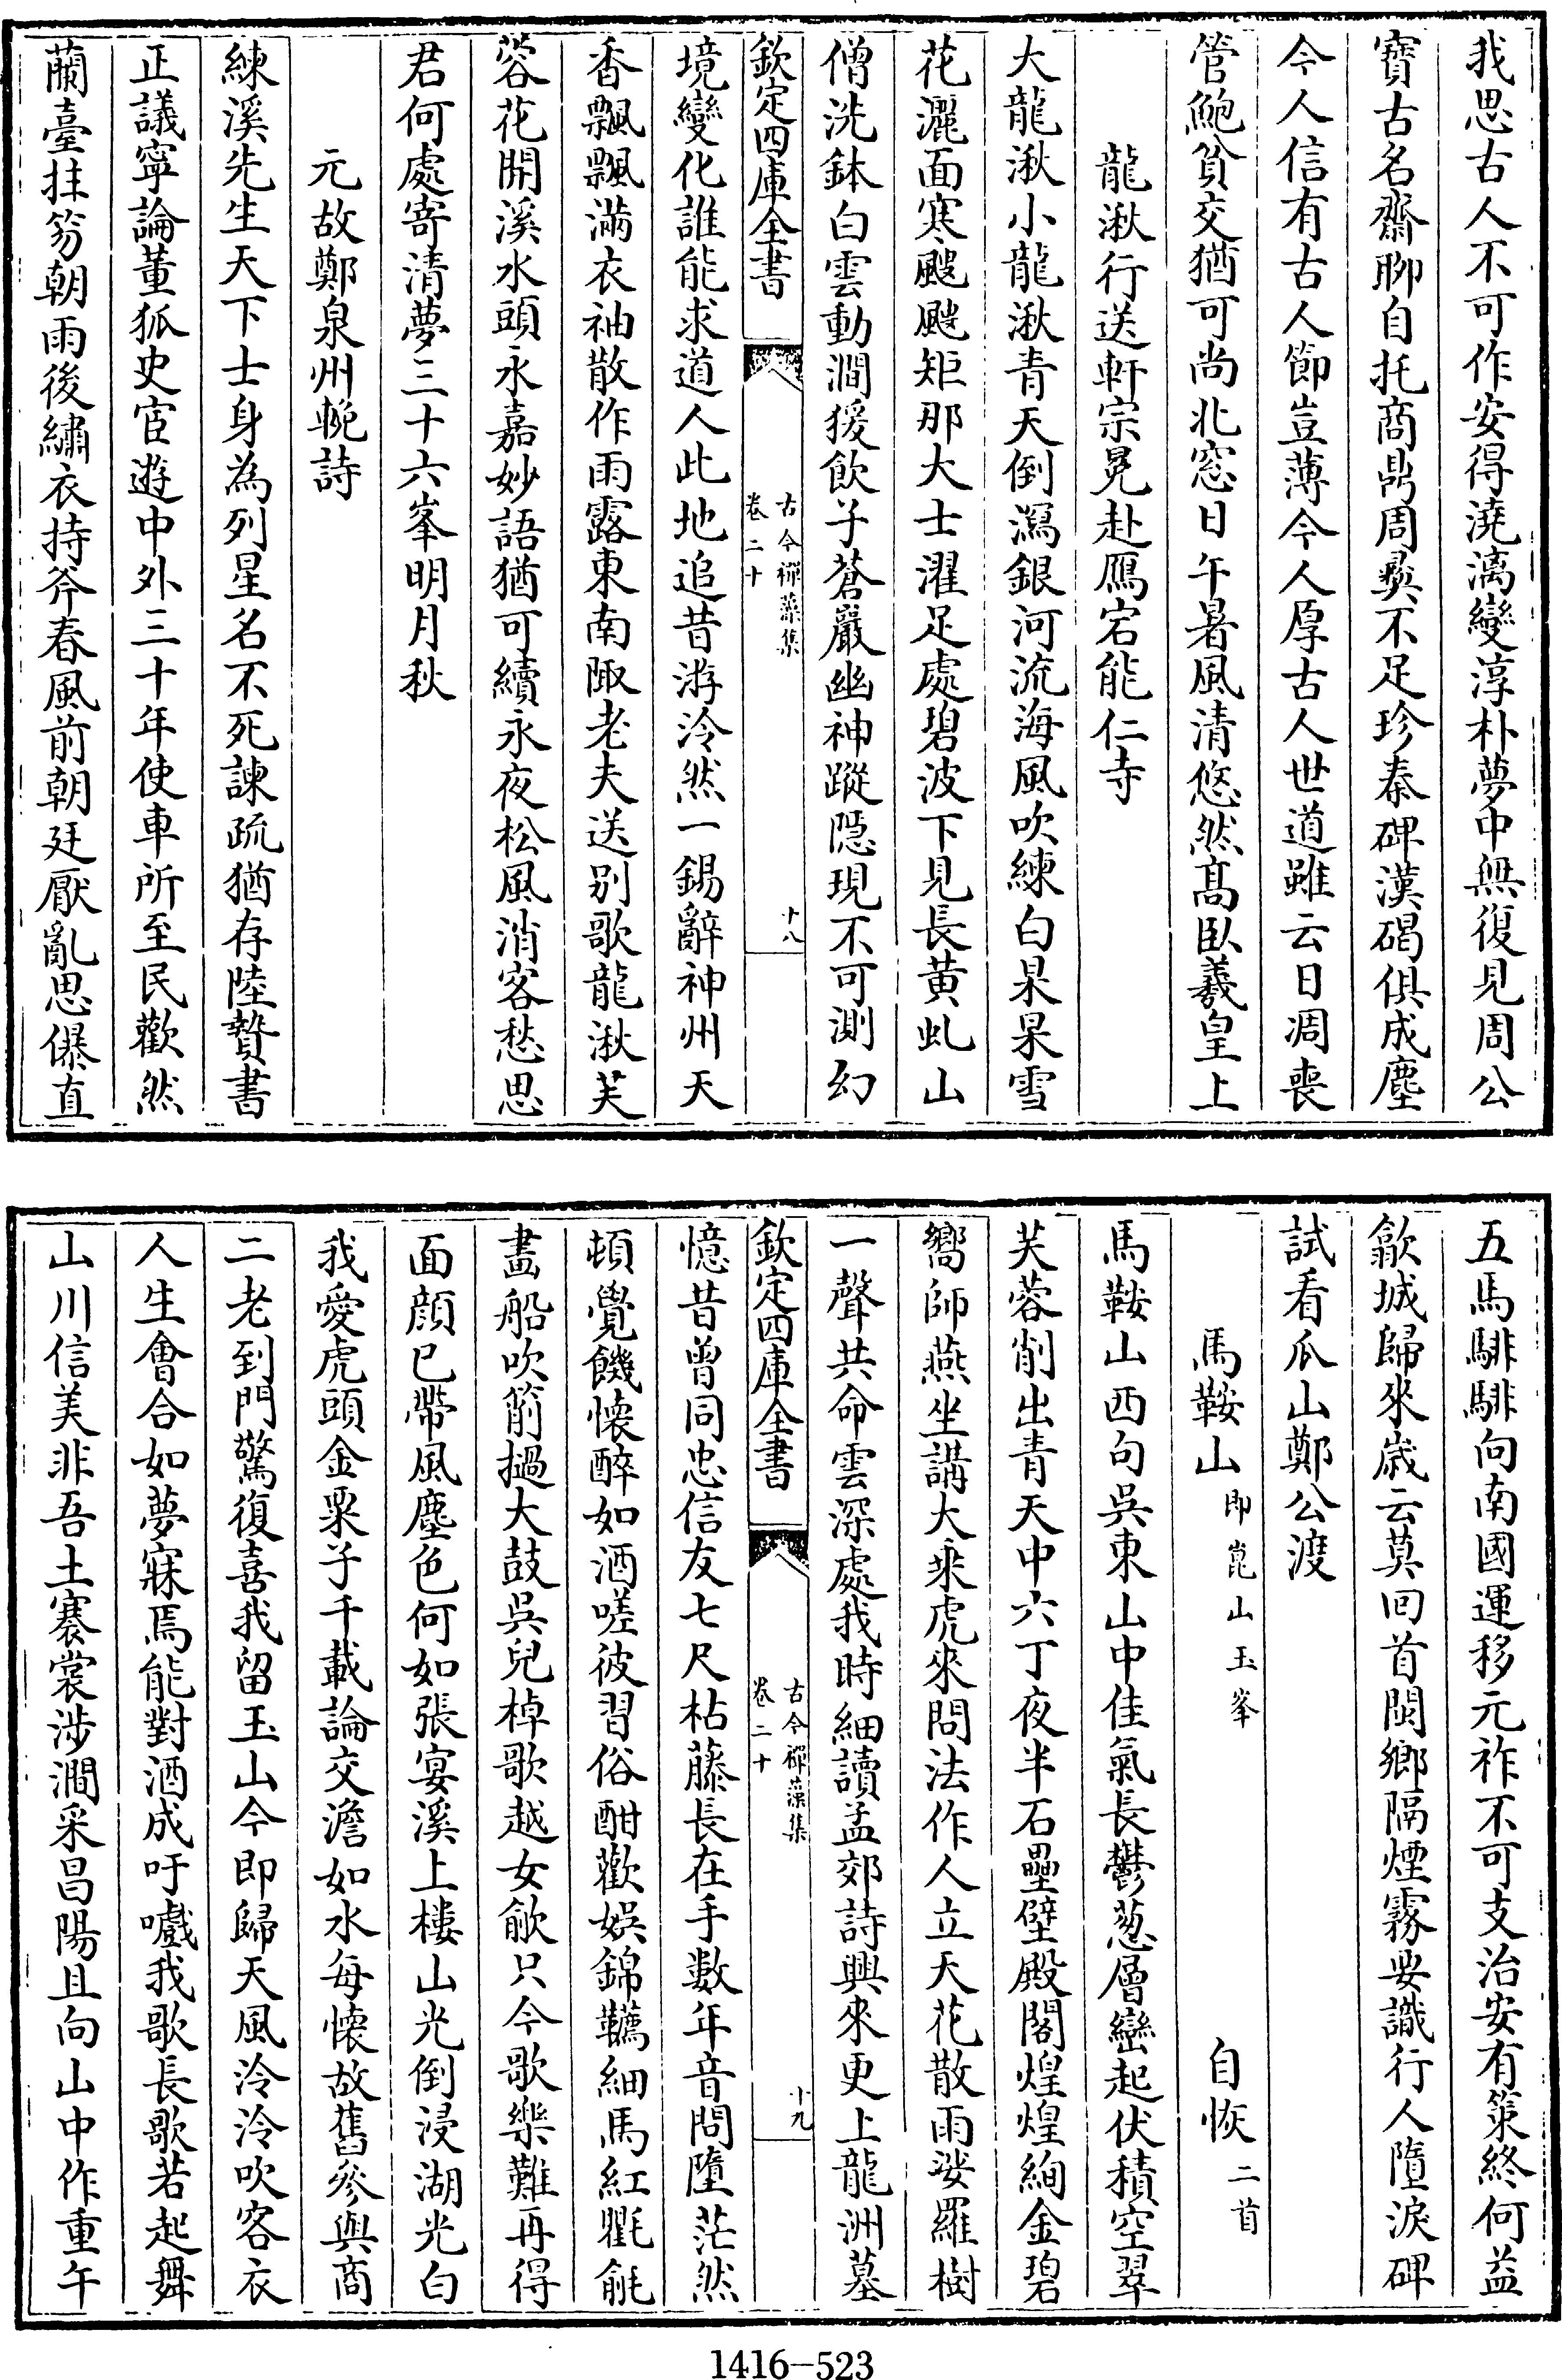 我思古人不可作安得澆漓變淳朴夢中無復見周公
寶古名齋聊自托商鼎周彞不足珍秦碑漢碣俱成塵
今人信有古人節豈薄今人厚古人世道雖云日凋喪
管鮑貧交猶可尚北窓日午暑風清悠然髙臥羲皇上
龍湫行送軒宗冕赴鴈宕能仁寺
大龍湫小龍湫青天倒瀉銀河流海風吹練白杲杲雪
花灑面寒颼颼矩那大士濯足處碧波下見長黄虬山
僧洗鉢白雲動澗猨飲子蒼巖幽神蹤隠現不可測幻
欽定四庫全書
古今禪藻集
卷二十
十八
境變化誰能求道人此地追昔游泠然一錫辭神州天
香飄飄滿衣袖散作雨露東南陬老夫送别歌龍湫芙
蓉花開溪水頭永嘉妙語猶可續永夜松風消客愁思
君何處寄清夢三十六峯明月秋
元故鄭泉州輓詩
練溪先生天下士身為列星名不死諫疏猶存陸贄書
正議寧論董狐史宦遊中外三十年使車所至民歡然
蘭臺拄笏朝雨後繡衣持斧春風前朝廷厭亂思儤直
五馬騑騑向南國運移元祚不可支治安有䇿終何益
歙城歸來歲云莫回首閩鄉隔煙霧要識行人墮淚碑
試看瓜山鄭公渡
馬鞍山 即崑山玉峯 自恢 二首
馬鞍山西句吳東山中佳氣長鬱葱層巒起伏積空翠
芙蓉削出青天中六丁夜半石壘壁殿閣煌煌絢金碧
嚮師燕坐講大乘虎來問法作人立天花散雨娑羅樹
一聲共命雲深處我時細讀孟郊詩興來更上龍洲墓
欽定四庫全書
古今禪藻集
卷二十
十九
憶昔曽同忠信友七尺枯藤長在手數年音問墮茫然
頓覺饑懐醉如酒嗟彼習俗酣歡娛錦韉細馬紅氍毹
畫船吹簫撾大鼓吳兒棹歌越女歈只今歌樂難再得
面顔已帶風塵色何如張宴溪上樓山光倒浸湖光白
我愛虎頭金粟子千載論交澹如水每懐故舊參與商
二老到門驚復喜我留玉山今即歸天風泠泠吹客衣
人生會合如夢寐焉能對酒成吁嚱我歌長歌若起舞
山川信美非吾土褰裳涉澗采昌陽且向山中作重午
1416-523